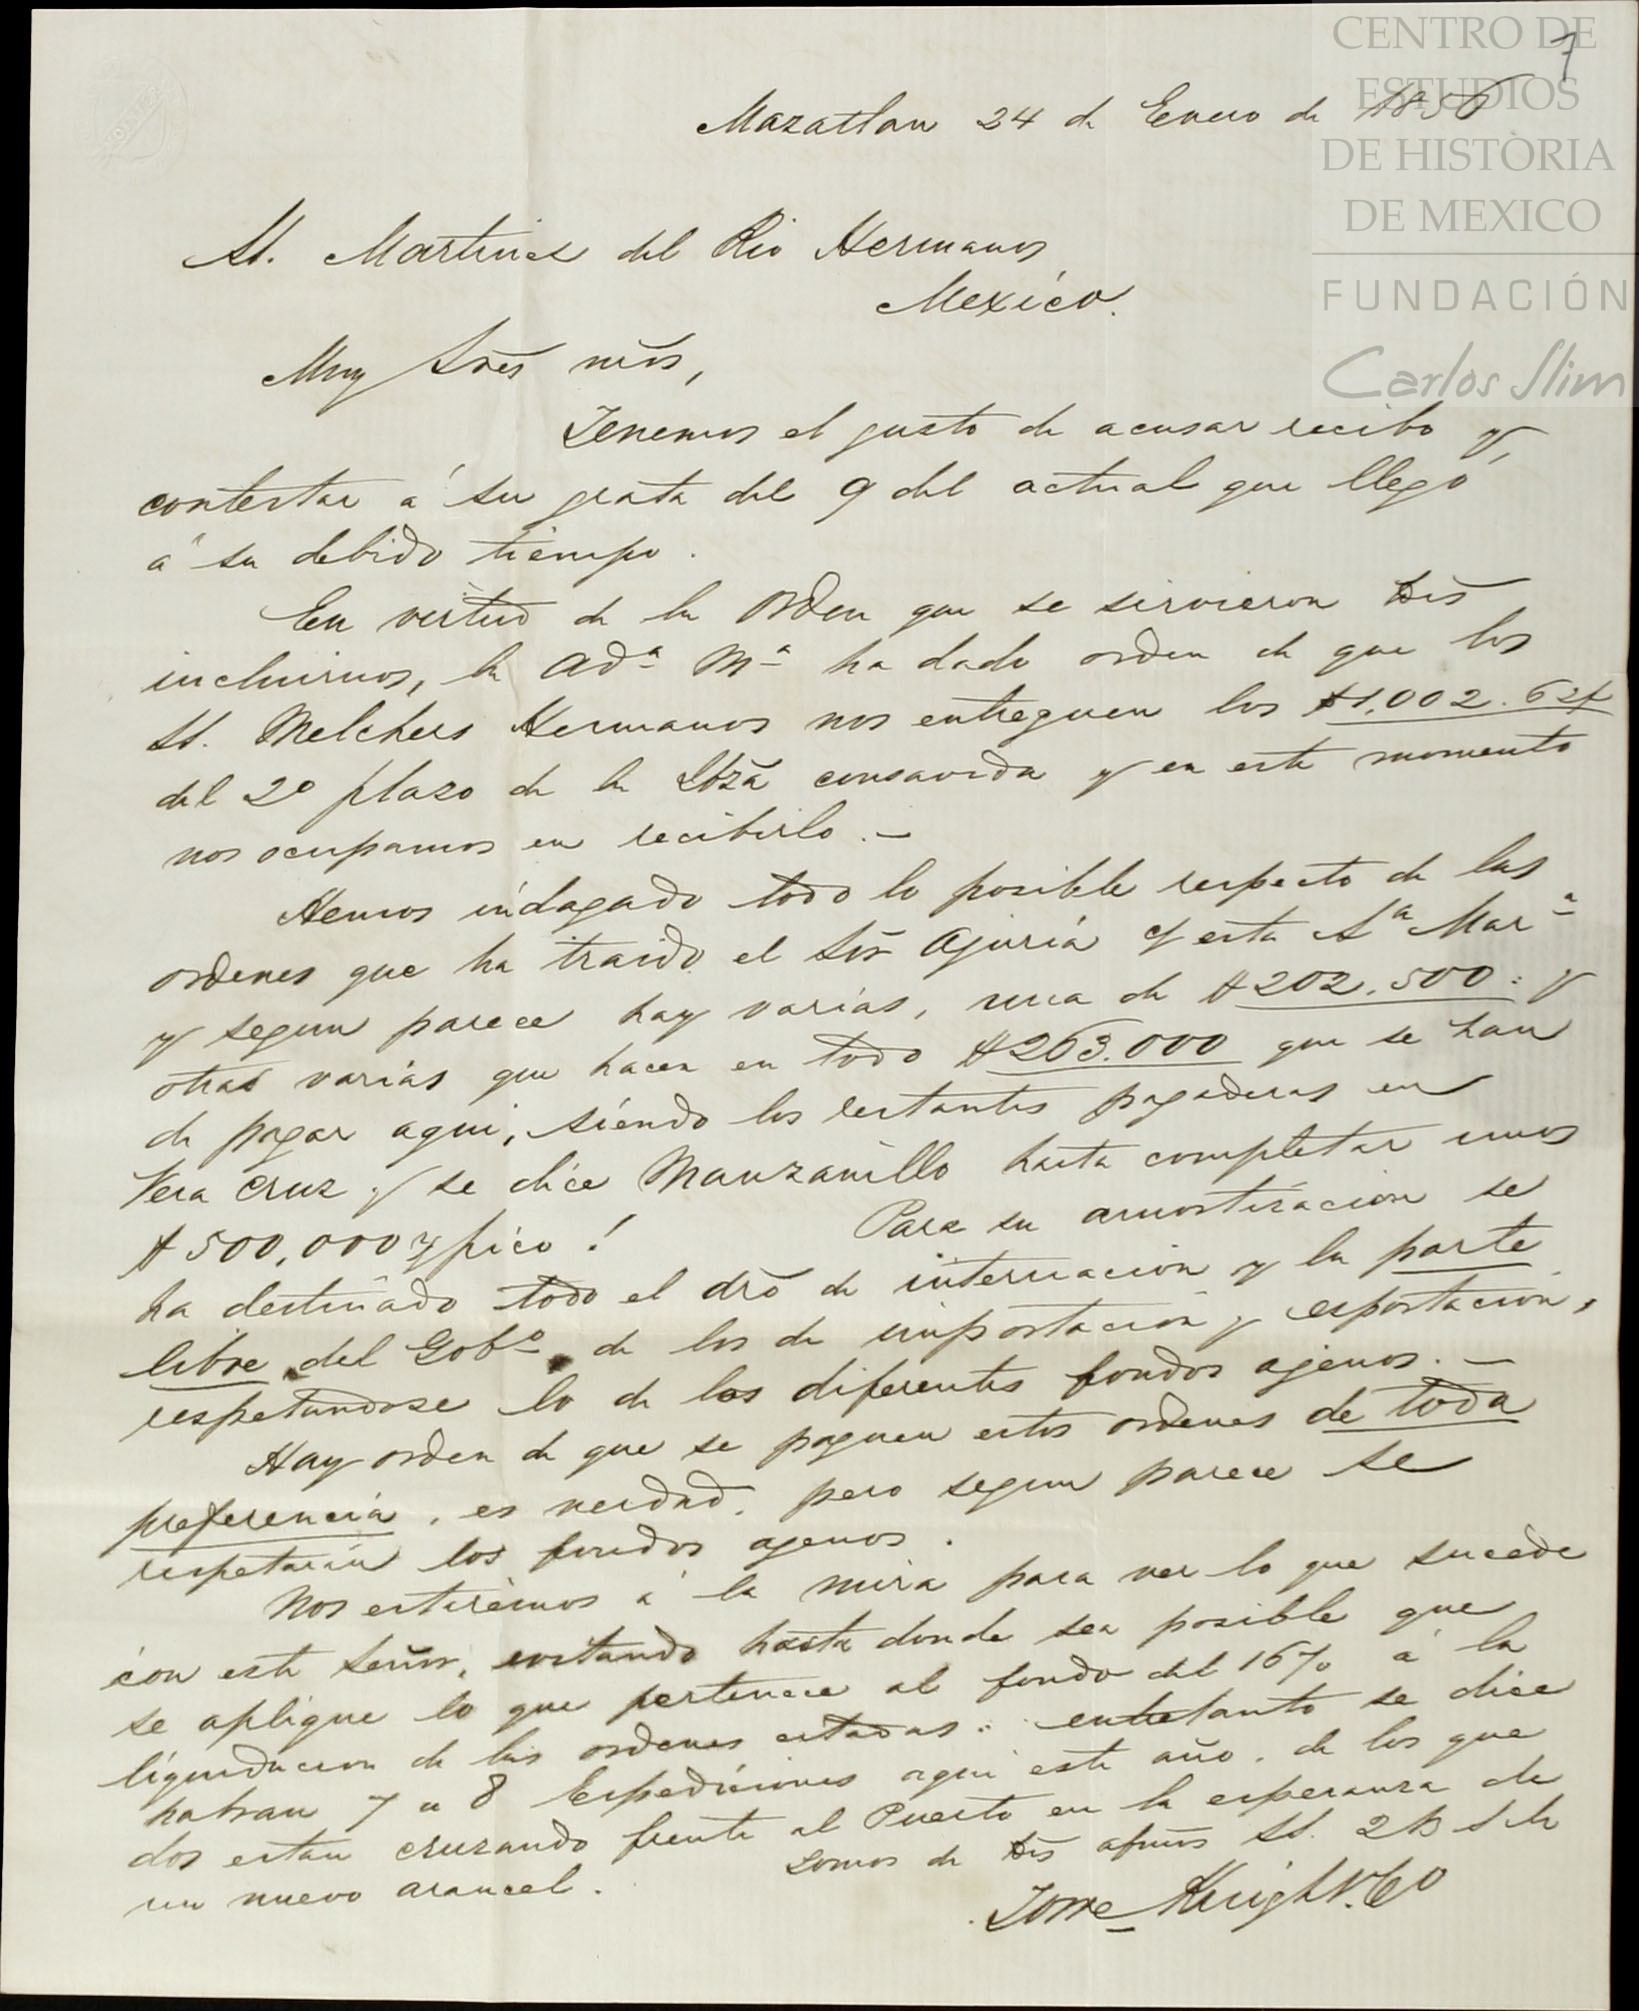 CENTRO DE
ESTUDIOS
DE HISTORIA
DE MEXICO
FUNDACIÓN
Carlos Slim
7
Mazatlan 24 de Enero de 1856
SS. Martinez del Rio Hermanos
Mexico.
Muy Srēs nr̃os,
Tenemos el gusto de acusar recibo y,
contestar á su grata del 9 del actual que llegó
á su debido tiempo.
En virtud de la orden que se sirvieron
incluirnos, la Adª Mª ha dado orden de que los
SS. Melchers Hermanos nos entreguen los $1,002.62½
del 2º plazo de la consavida y en este momento
nos ocupamos en recibirlo. –
Hemos indagado todo lo posible respecto de las
ordenes que ha traido el Sor Ajuria y esta Aª Marª
y segun parece hay varias, una de $202,500: y
otras varias que hacen en todo $263.000 que se han
de pagar aqui, siendo los restantes pagaderas en
Vera Cruz y se dice Manzanillo hasta completar unos
$500,000 y pico! Para su amortización se
ha destinado todo el dr̃o de internacion y la parte
libre del Gobº de los de importacion y esportacion,
respetandose lo de los diferentes fondos agenos. –
Hay orden de que se paguen estos ordenes de toda
preferencia, es verdad, pero segun parece se
respetarán los fondos agenos.
Nos estarémos á la mira para ver lo que sucede
con este Señor, evitando hasta donde sea posible que
se aplique lo que pertenece al fondo del 16% á la
liquidacion de las ordenes citadas: entretanto se dice
habran 7 u 8 Espediciones aqui este año, de los que
dos estan cruzando frente al Puerto en la esperanza de
un nuevo arancel. Somos de afmos SS. 2B S M
Torre Knight & Co